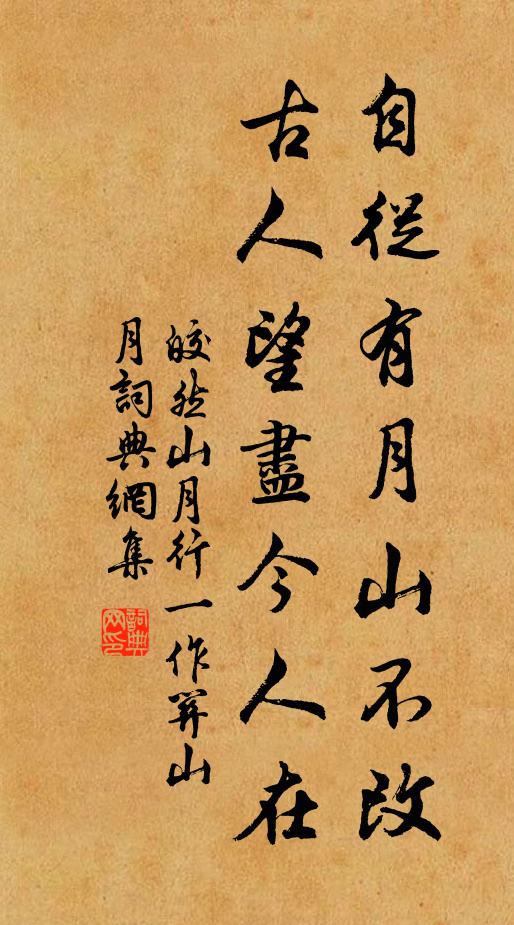 自從有月山不改
古人望盡今人在
皎然山月行一作關山
月詞典網集
詞典网印